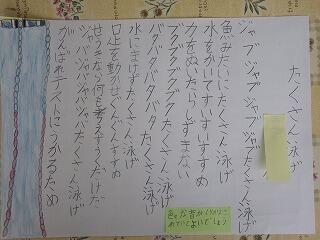 たくさん泳げ
ジャブジャブジャブジャブたくさん泳げ
魚みたいにたくさん泳げ
水をかいてすいすいすすめ
力をぬいたらしずまない
ブクブクブクブクたくさん泳げ
バタバタバタバタたくさん泳げ
水にまけずたくさん泳げ
足を動かせぐんぐんすすめ
せきなら何も考えずくだけだ
ジャバジャバジャバジャバたくさん泳げ
がんばれテストにうかるため
色々な音が
れていてよいでしょう